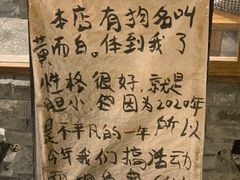 本店有狗名叫
黄而白。体到我了
性格很好,就是
胆小。因为2020年
是不平凡的一年 所以
今年我们搞活动